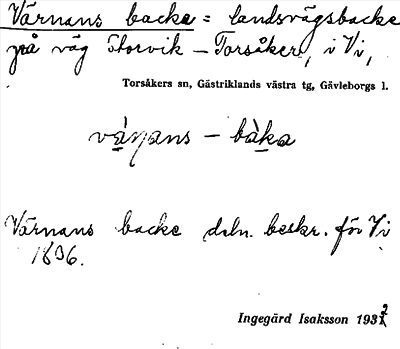 Värnans backe = landsvägsbacke
på väg Storvik - Torsåker, i Vi,
Torsåkers sn, Gästriklands västra tg, Gävleborgs l.
Värnans backe deln. beskr. för Vi
1836.
Ingegärd Isaksson 1932